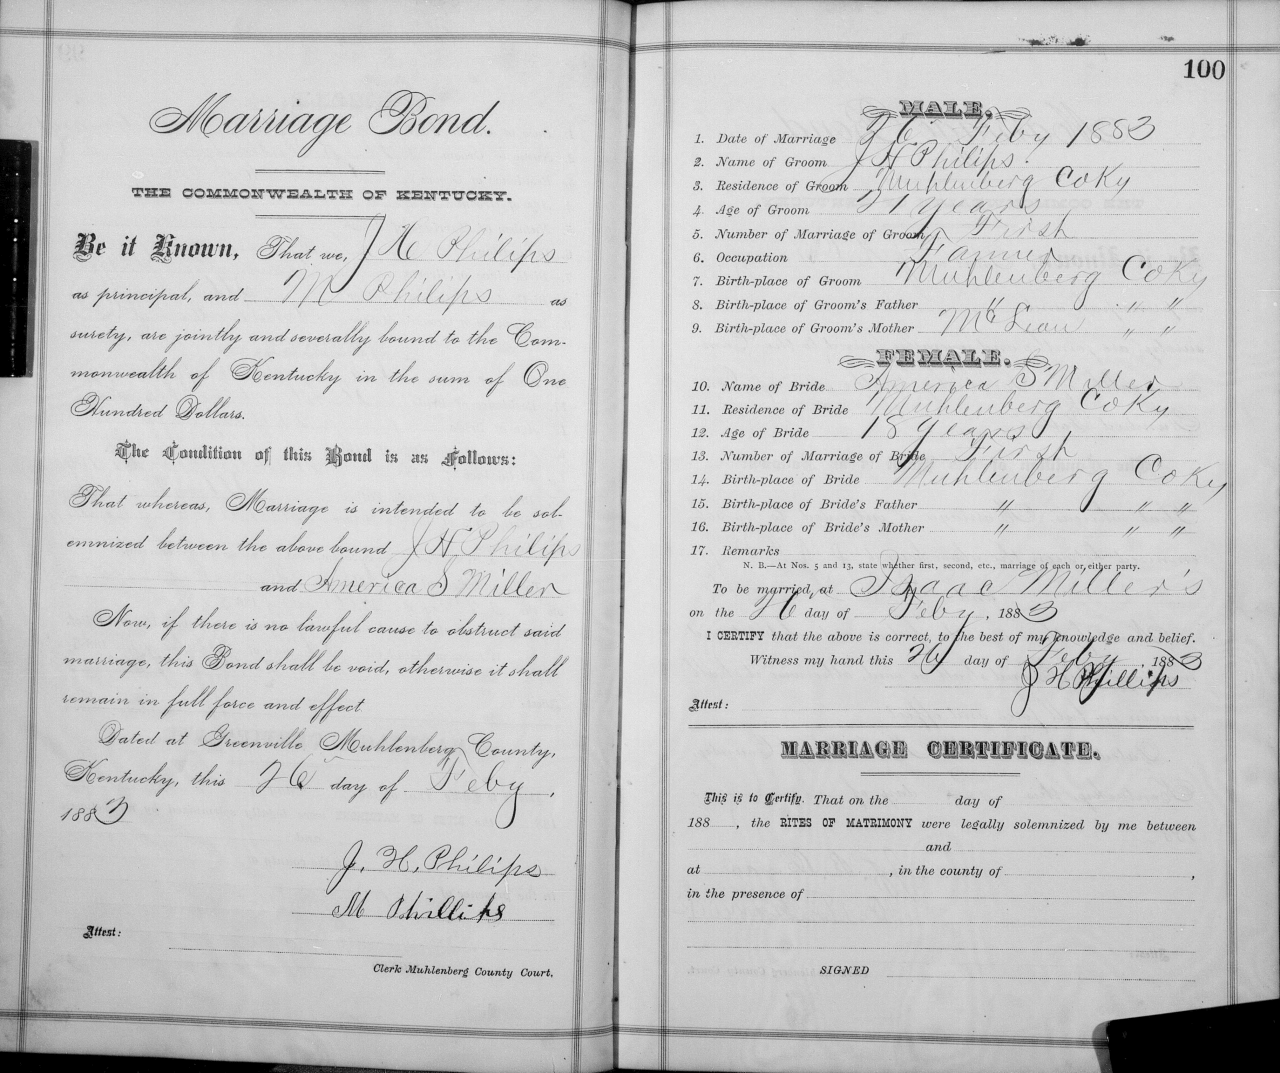 Marriage Bond.
THE COMMONWEALTH OF KENTUCKY.
Be it Known, That we, J H Philips
as principal, and M Philips as
surety, are jointly and severally bound to the Com-
monwealth of Kentucky in the sum of One
Hundred Dollars.
The Condition of this Bond is as Follows:
That whereas, Marriage is intended to be sol-
emnized between the above bound J H Philips
and America S Miller
Now, if there is no lawful cause to obstruct said
marriage, this Bond shall be void, otherwise it shall
remain in full force and effect
Dated at Greenville Muhlenberg County,
Kentucky, this 26 day of Feby,
1883
J. H. Philips
M Phillips
Attest:
Clerk Muhlenberg County Court.
100
MALE.
1. Date of Marriage 26 Feby 1883
2. Name of Groom J H Philips
3. Residence of Groom Muhlenberg Co Ky
4. Age of Groom 21 years
5. Number of Marriage of Groom First
6. Occupation Farmer
7. Birth-place of Groom Muhlenberg Co Ky
8. Birth-place of Groom's Father " " "
9. Birth-place of Groom's Mother Mc Lean " "
FEMALE.
10. Name of Bride America S Miller
11. Residence of Bride Muhlenberg Co Ky
12. Age of Bride 18 years
13. Number of Marriage of Bride First
14. Birth-place of Bride Muhlenberg Co Ky
15. Birth-place of Bride's Father " " "
16. Birth-place of Bride's Mother " " "
17. Remarks
N. B.—At Nos. 5 and 13, state whether first, second, etc., marriage of each or either party.
To be married at Isaac Miller's
on the 26 day of Feby, 1883
I CERTIFY that the above is correct, to the best of my knowledge and belief.
Witness my hand this 26 day of Feby, 1883
J H Phillips
Attest:
MARRIAGE CERTIFICATE.
This is to Certify. That on the day of
188 , the RITES OF MATRIMONY were legally solemnized by me between
and
at , in the county of ,
in the presence of
SIGNED